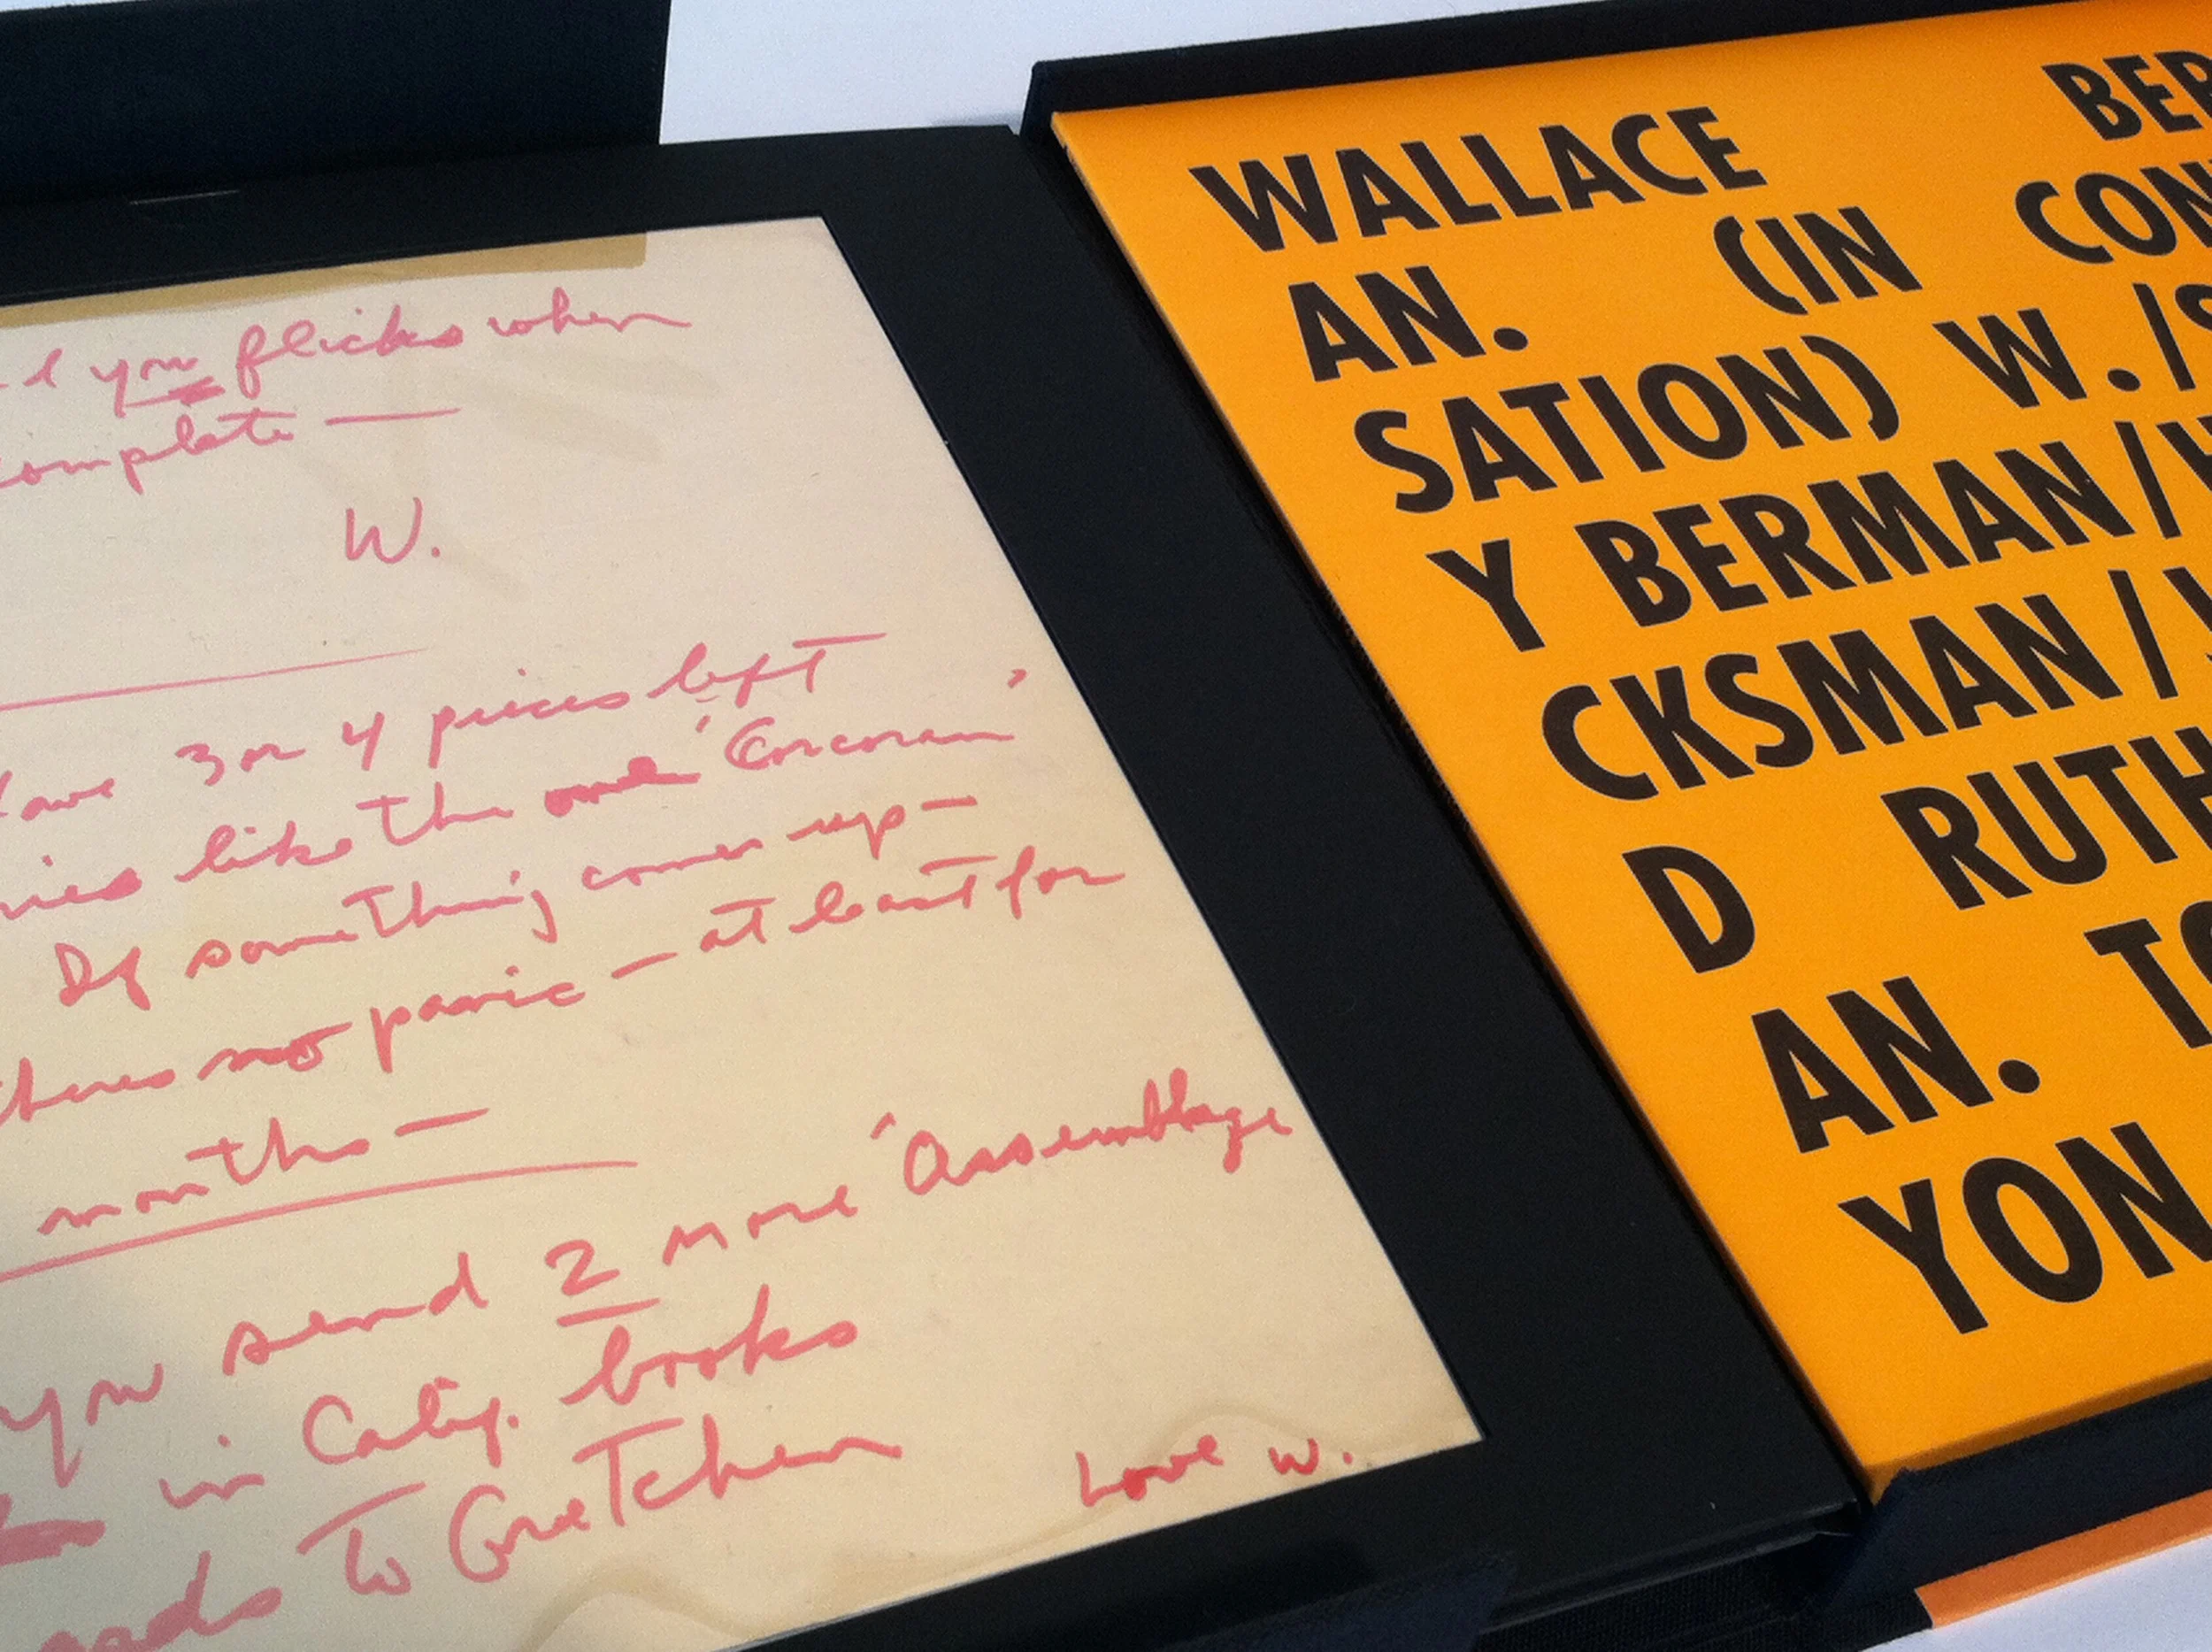 you flicks when
complete —
W.
have 3 or 4 pieces left
like the one 'Corcoran'
If something comes up —
theres no panic — at least for
months —
you send 2 more 'Assemblage
in Calif. books
to Gretchen
Love W.
WALLACE BER
AN. (IN CON
SATION) W./S
Y BERMAN/H
CKSMAN/
D RUTH
AN. TO
YON